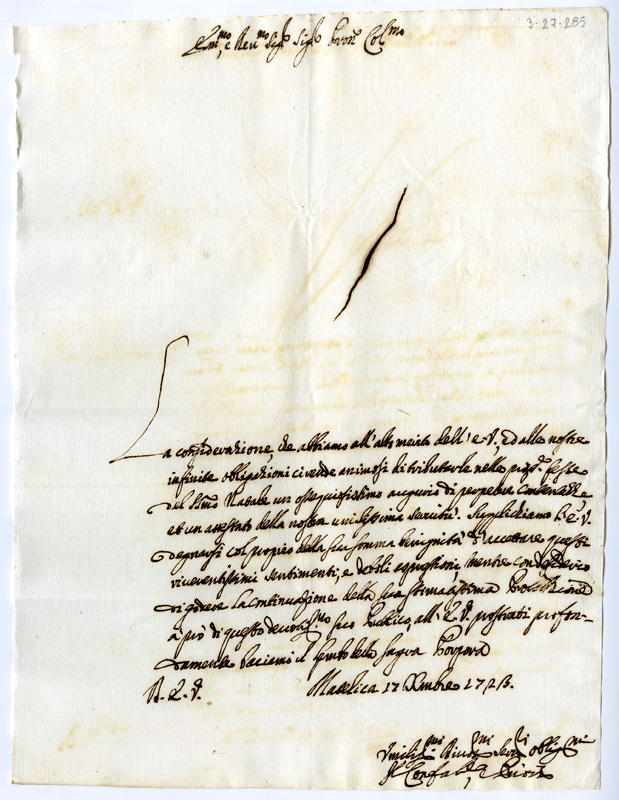 3-27-285
Em.mo, e Rev.mo Sig.r Sig.r Pron Col.mo
La considerazione, che abbiamo all'alto merito dell'E.V., ed alle nostre
infinite obligazioni ci rende animosi di tributarle nelle pros.e feste
del SSmo Natale un ossequiosissimo augurio di perpetue
et un attestato della nostra umilissima servitù. Supplichiamo l'E.V.
degnarsi col proprio della sua somma benignità d'accettare questi
riverentissimi sentimenti, e devoli espressioni, mentre con desiderio
di godere la continuazione della sua stimatissima Protezione
a prò di questo suo Publico, all'E.V. prostrati profon-
damente baciamo il lembo della Sagra Porpora
D. E. V. Matelica 17 Xmbre 1723.
Umiliss.mi Serv.ri oblig.mi
Il Confal.re e Priori